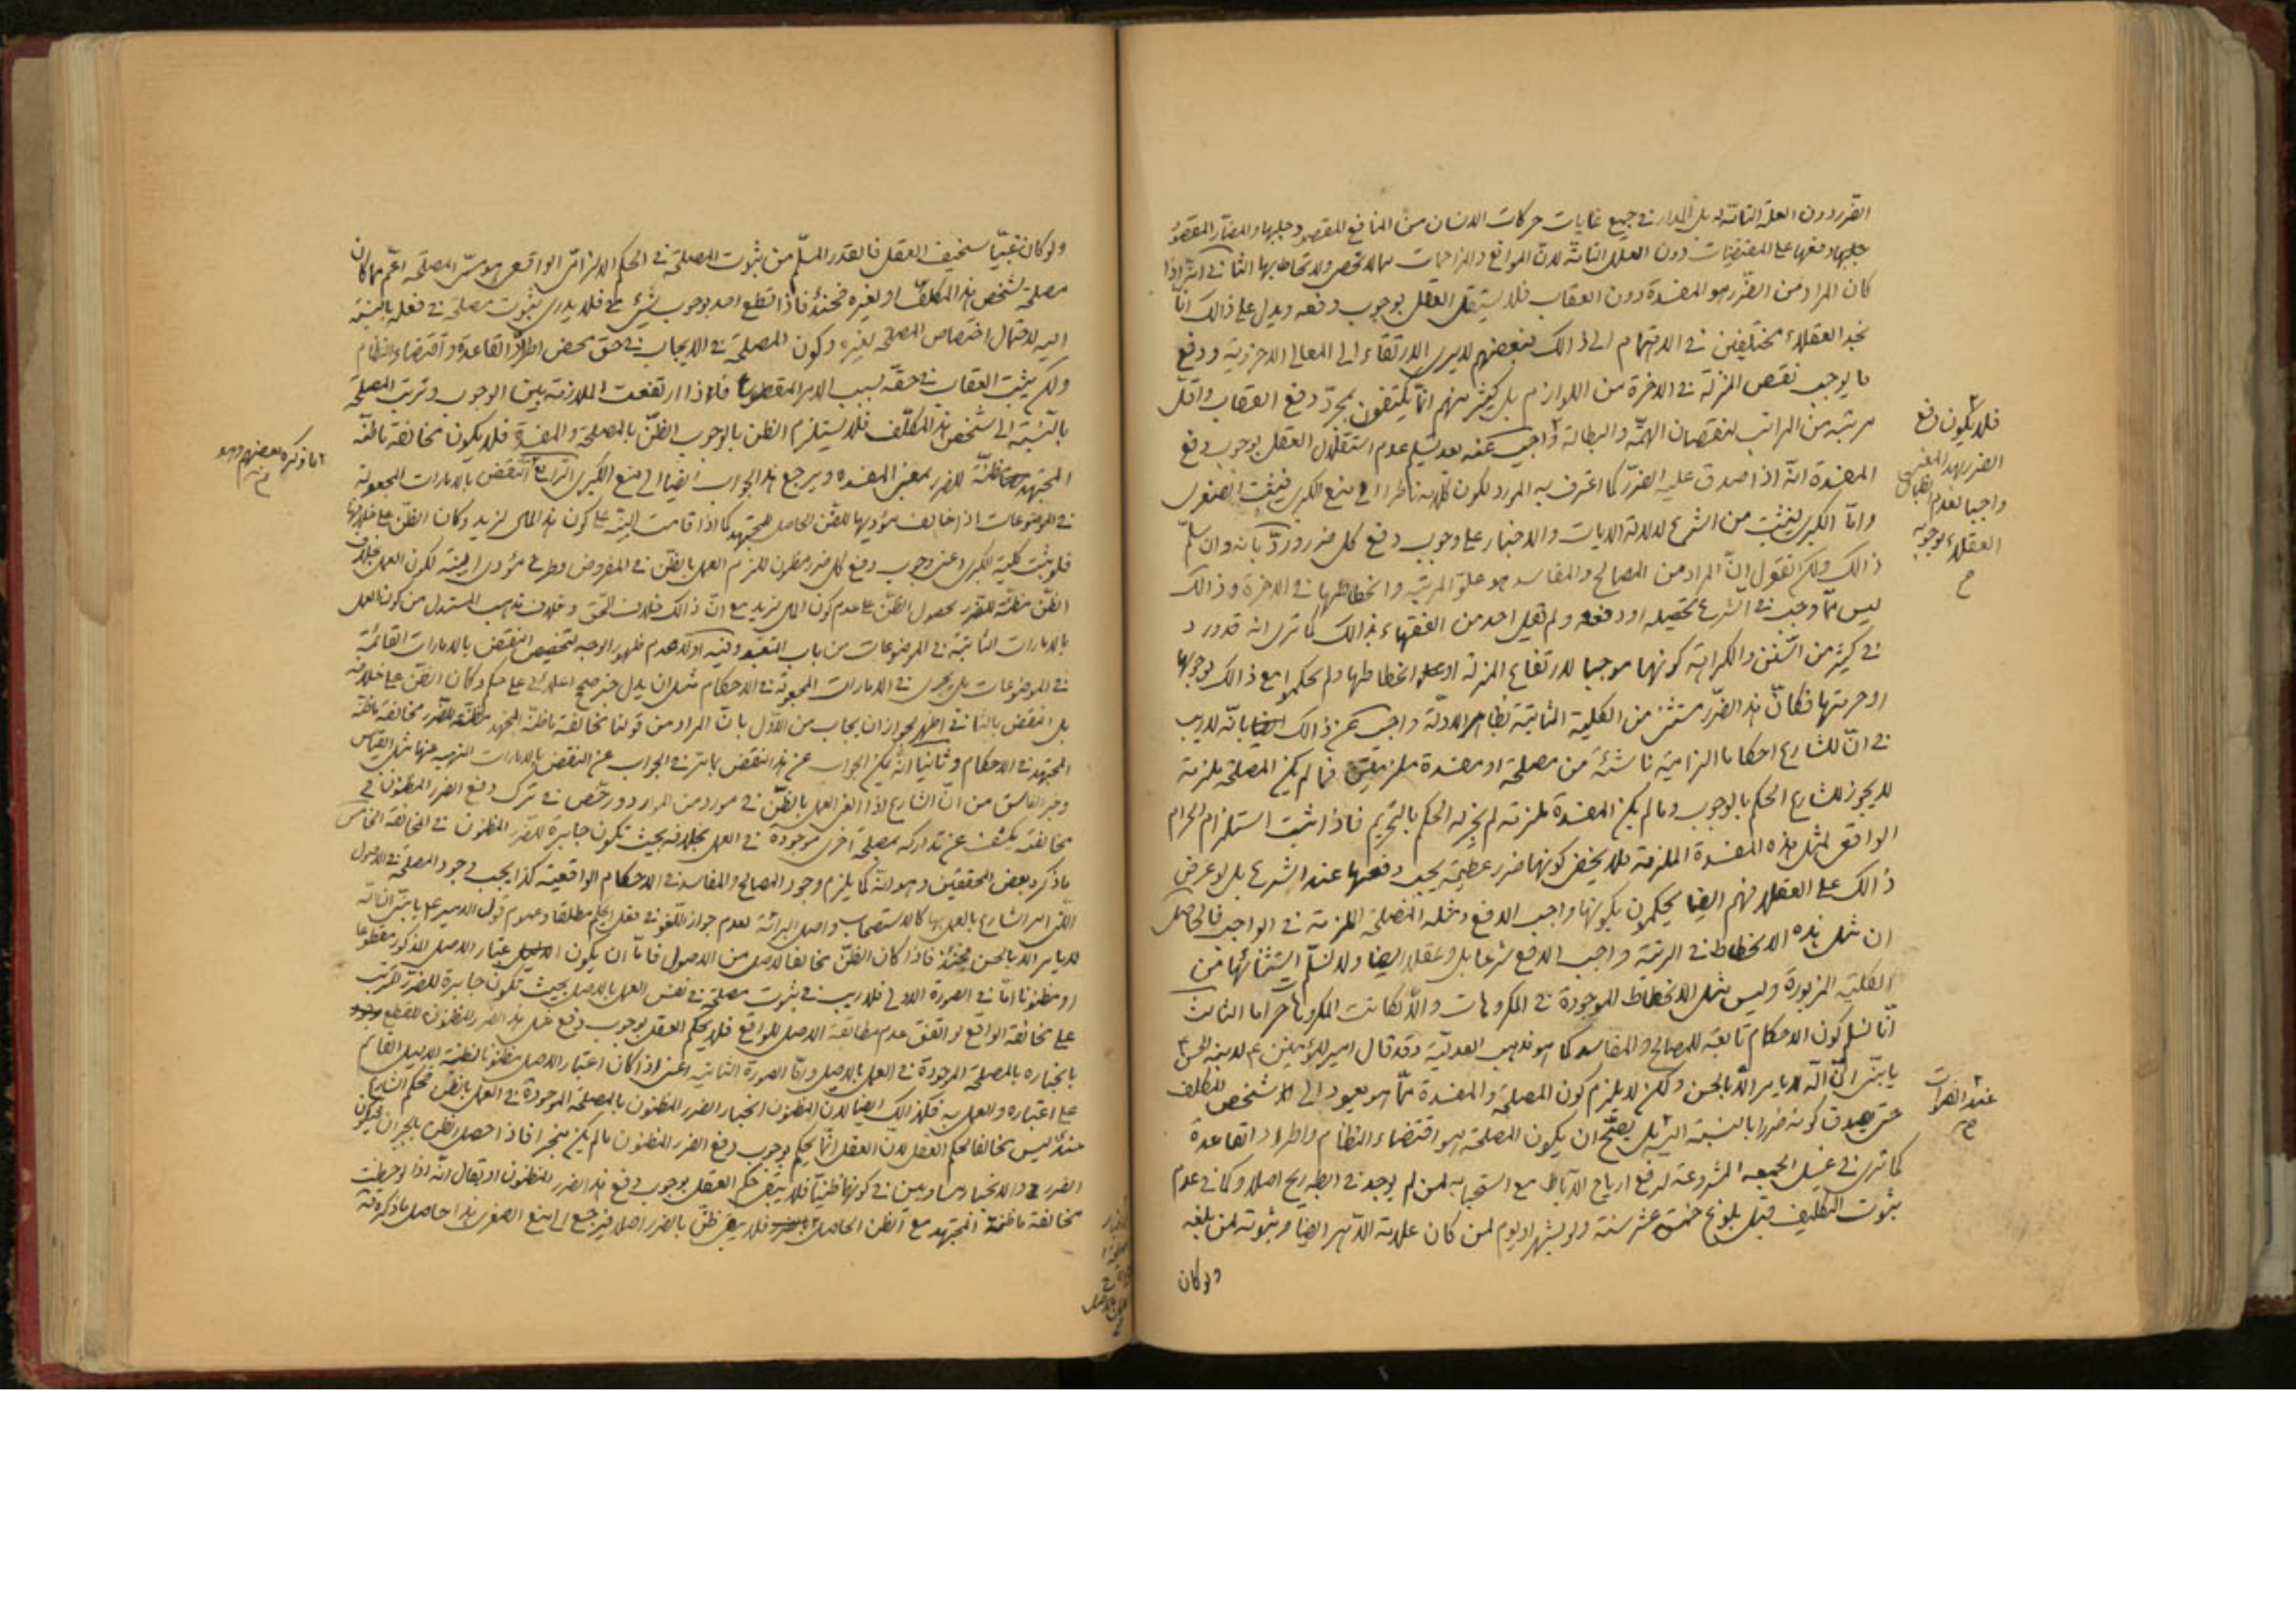 الضرر دون العلة التامة له بل المدار في جميع غايات حركات الانسان من المنافع المقصود جلبها والمضار المقصود
على المقتضيات دون العلل التامة لان الموانع والمزاحمات مما لا تحصى ولا يحاط بها الثاني اذا
كان المراد من الضرر هو المفسدة دون العقاب فلا يستقل العقل بوجوب دفعه ويدل على ذالك انا
نجد العقلاء مختلفين في الاهتمام الى ذالك فبعضهم لا يرى الارتقاء الى المعالي الاخروية ودفع
ما يوجب نقص المنزلة في الاخرة من اللوازم بل كثير منهم انما يكتفون بمجرد دفع العقاب واقل
مرتبة من المراتب لنقصان الهمة والبطالة واجيب عنه بعد تسليم عدم استقلال العقل بوجوب دفع
المفسدة انه اذا صدق عليه الضرر كما اعترف به المورد لكون كلامه ناظرا الى منع الكبرى فيثبت الصغرى
واما الكبرى فيثبت من الشرع لدلالة الايات والاخبار على وجوب دفع كل ضرر ورد بانه وان سلم
ذالك ولكن نقول ان المراد من المصالح والمفاسد هو علو المرتبة وانحطاطها في الاخرة وذالك
ليس مما وجب في الشرع تحصيله او دفعه ولم يقل احد من الفقهاء بذالك كما ترى انه قد ورد
في كثير من السنن والكراهة كونهما موجبا لارتفاع المنزلة او انحطاطها ولم يحكموا مع ذالك بوجوبها
او حرمتها فكان هذا الضرر مستثنى من الكلية الثابتة بظاهر الادلة واجيب عن ذالك بانه لا ريب
في ان للشارع احكاما الزامية ناشئة من مصلحة او مفسدة ملزمتين فما لم يكن المصلحة ملزمة
لا يجوز للشارع الحكم بالوجوب وما لم يكن المفسدة ملزمة لم يجز له الحكم بالتحريم فاذا ثبت استلزام الحرام
الواقعي لمثل هذه المفسدة الملزمة فلا يخفى كونها ضرر عظيمة يجب دفعها عند الشرع بل لو عرض
ذالك على العقلاء فهم ايضا يحكمون بكونها واجب الدفع ومثله المصلحة الملزمة في الواجب فالحاصل
ان مثل هذه الانحطاط في الرتبة واجب الدفع شرعا بل وعقلا ايضا ولا نسلم استثنائها من
الكلية المزبورة وليس مثل الانحطاط الموجودة في المكروهات والا لكانت المكروهات حراما الثالث
انا نسلم كون الاحكام تابعة للمصالح والمفاسد كما هو مذهب العدلية وقد قال امير المؤمنين ع لابنه الحسن ع
يا بني ان الله لا يامر الا بالحسن ولكن لا يلزم كون المصلحة والمفسدة مما هو يعود الى شخص المكلف
حتى يصدق كونه ضررا بالنسبة اليه بل يصح ان يكون المصلحة هو اقتضاء النظام واطراد القاعدة
كما ترى في غسل الجمعه المشروعة لرفع ارياح الآباط مع استحبابه لمن لم يوجد فيه الريح اصلا وكما في عدم
ثبوت التكليف قبل بلوغ خمسة عشر سنة ولو بشهر او يوم لمن كان علامة الذهن ايضا وثبوته لمن بلغه
ولو كان
فلا يكون دفع
الضرر بهذا المعنى
واجبا لعدم
العقلاء بوجوبه
ولو كان غبيا سخيف العقل فالقدر المسلم من ثبوت المصلحة في الحكم الالزامي الواقعي هو المصلحة اعم مما كان
مصلحة لشخص هذا المكلف او لغيره فحينئذ فاذا قطع احد بوجوب شيء فلا يدرى ثبوت مصلحة في فعله بالنسبة
اليه لاحتمال اختصاص المصلحة لغيره وكون المصلحة في الايجاب في حقه محض اطراد القاعدة واقتضاء النظام
ولكن يثبت العقاب في حقه بسبب الامر المقطوع فاذا ارتفعت الملازمة بين الوجوب وترتب المصلحة
بالنسبة الى شخص هذا المكلف فلا يستلزم الظن بالوجوب الظن بالمصلحة والمفسدة فلا يكون مخالفة ما ظنه
المجتهد مظنة للضرر بمعنى المفسده ويرجع هذا الجواب ايضا الى منع الكبرى الرابع النقض بالامارات المجعولة
في الموضوعات اذا خالف مؤديها للظن الحاصل للمجتهد كما اذا قامت البينة على كون هذا المال لزيد وكان الظن على خلافها
فلو ثبت كلية الكبرى اعني وجوب دفع كل ضرر مظنون للزم العمل بالظن في المفروض وطرح مؤدى البينة لكون العمل بخلاف
الظن مظنة للضرر لحصول الظن على عدم كون المال لزيد مع ان ذالك خلاف الحق وخلاف مذهب المستدل من كون العمل
بالامارات الثابتة في الموضوعات من باب التعبد وفيه اولا عدم ظهور الوجه لتخصيص النقض بالامارات القائمة
في الموضوعات بل يجرى في الامارات المجعولة في الاحكام مثل ان يدل خبر صحيح اعلائي على حكم وكان الظن على خلافه
بل النقض بالثاني اظهر لجواز ان يجاب من الاول بان المراد من قولنا مخالفة ما ظنه المجتهد مظنة للضرر مخالفة ما ظنه
المجتهد في الاحكام وثانيا انه يمكن الجواب عن هذا النقض بما مر في الجواب عن النقض بالامارات المنهية عنها مثل القياس
وخبر الفاسق من ان الشارع اذا الغى العمل بالظن في مورد من الموارد ورخص في ترك دفع الضرر المظنون في
مخالفته يكشف عن تداركه بمصلحة اخرى موجودة في العمل بخلافه بحيث تكون جابرة للضرر المظنون في المخالفة الخامس
ما ذكره بعض المحققين وهو انه كما يلزم وجود المصالح والمفاسد في الاحكام الواقعية كذا يجب وجود المصلحة في الاصول
التي امر الشارع بالعمل بها كالاستصحاب واصل البرائة لعدم جواز اللغو في فعل الحكيم مطلقا وعموم قول الامير ع يا بني ان الله
لا يامر الا بالحسن فحينئذ فاذا كان الظن مخالفا لاصل من الاصول فاما ان يكون اعتبار الاصل المذكور مقطوعا
او مظنونا اما في الصورة الاولى فلا ريب في ثبوت مصلحة في نفس العمل بالاصل بحيث تكون جابرة للضرر المرتب
على مخالفة الواقع لو اتفق عدم مطابقة الاصل للواقع فلا يحكم العقل بوجوب دفع مثل هذا الضرر المظنون للقطع
بانجباره بالمصلحة الموجودة في العمل بالاصل واما الصورة الثانية اعني اذا كان اعتبار الاصل مظنونا لظنية الدليل القائم
على اعتباره والعمل به فكذالك ايضا لان المظنون انجبار الضرر المظنون بالمصلحة الموجودة في العمل بالظن فحكم الشارع
حينئذ ليس مخالفا لحكم العقل لان العقل انما يحكم بوجوب دفع الضرر المظنون ما لم يكن منجبرا فاذا حصل الظن بالجبران فيكون
الضرر والانجبار متساويين في كونهما ظنيا فلا يبقى حكم العقل بوجوب دفع هذا الضرر المظنون او يقال انه اذا لوحظت
مخالفة ما ظنه المجتهد مع الظن الحاصل فلا يبقى ظن بالضرر اصلا فيرجع الى منع الصغرى هذا حاصل ما ذكره فيه
ما ذكره بعضهم وهو